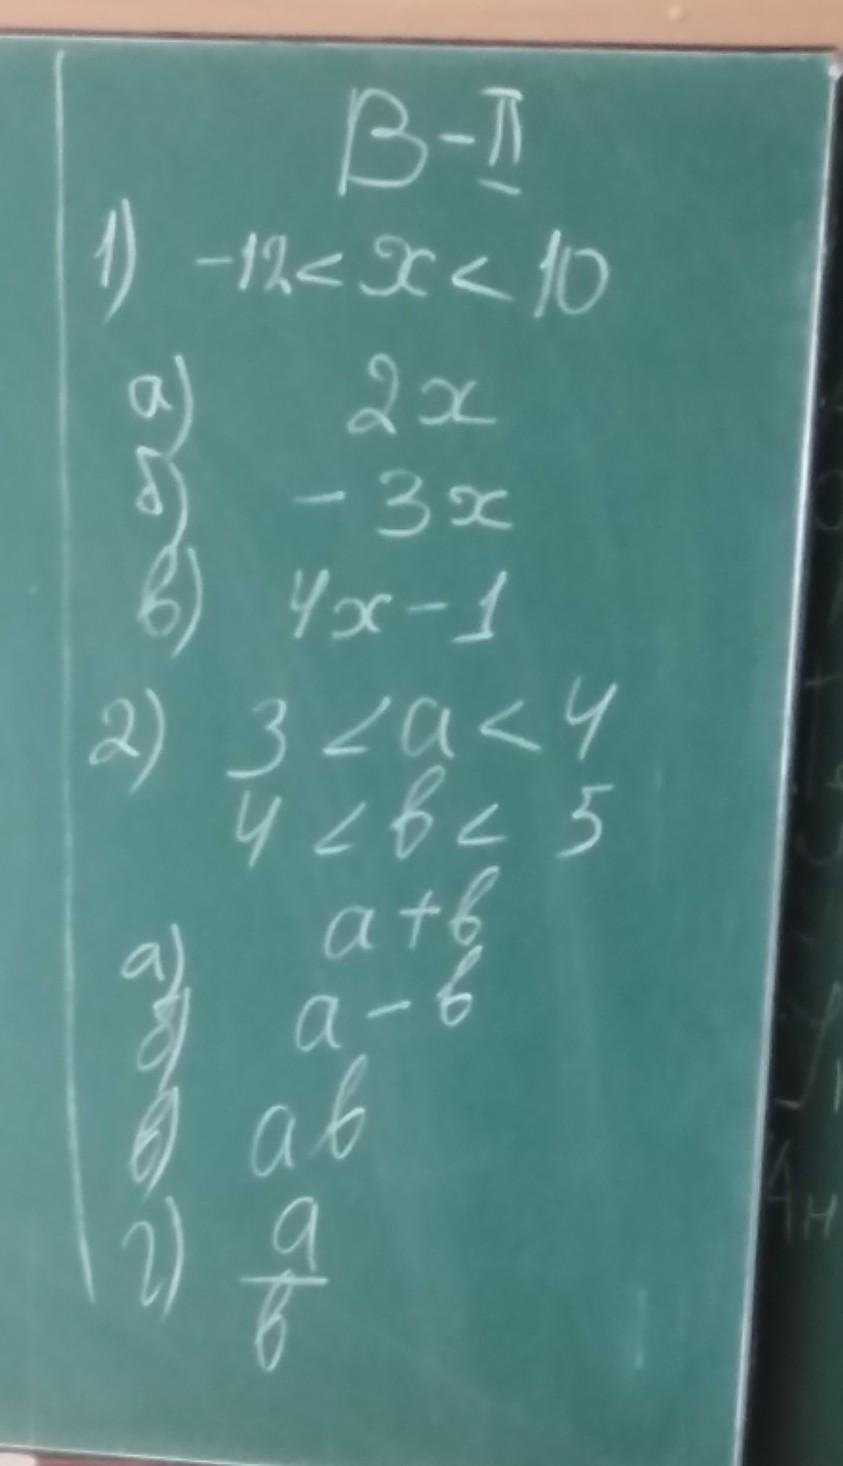 В-II
1) -12 < x < 10
а) 2x
б) - 3x
в) 4x - 1
2) 3 < a < 4
4 < b < 5
а) a + b
б) a - b
в) ab
г) a/b